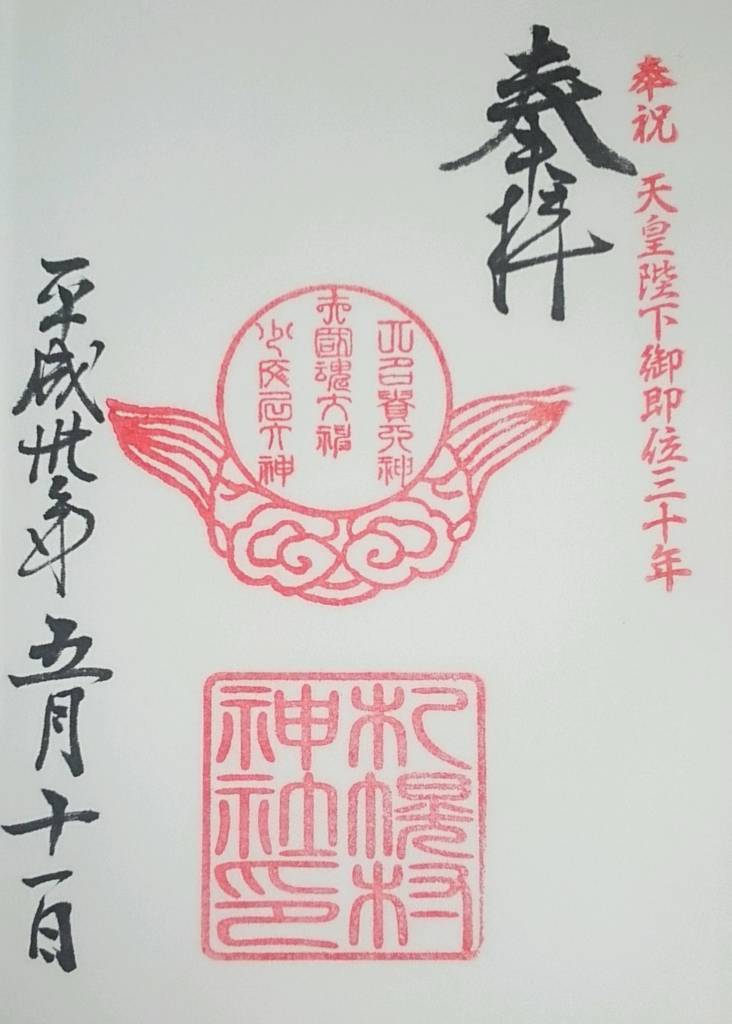 奉祝　天皇陛下御即位三十年
奉拝
大己貴大神
大國魂大神
少彦名大神
札幌村
神社印
平成卅年五月十一日